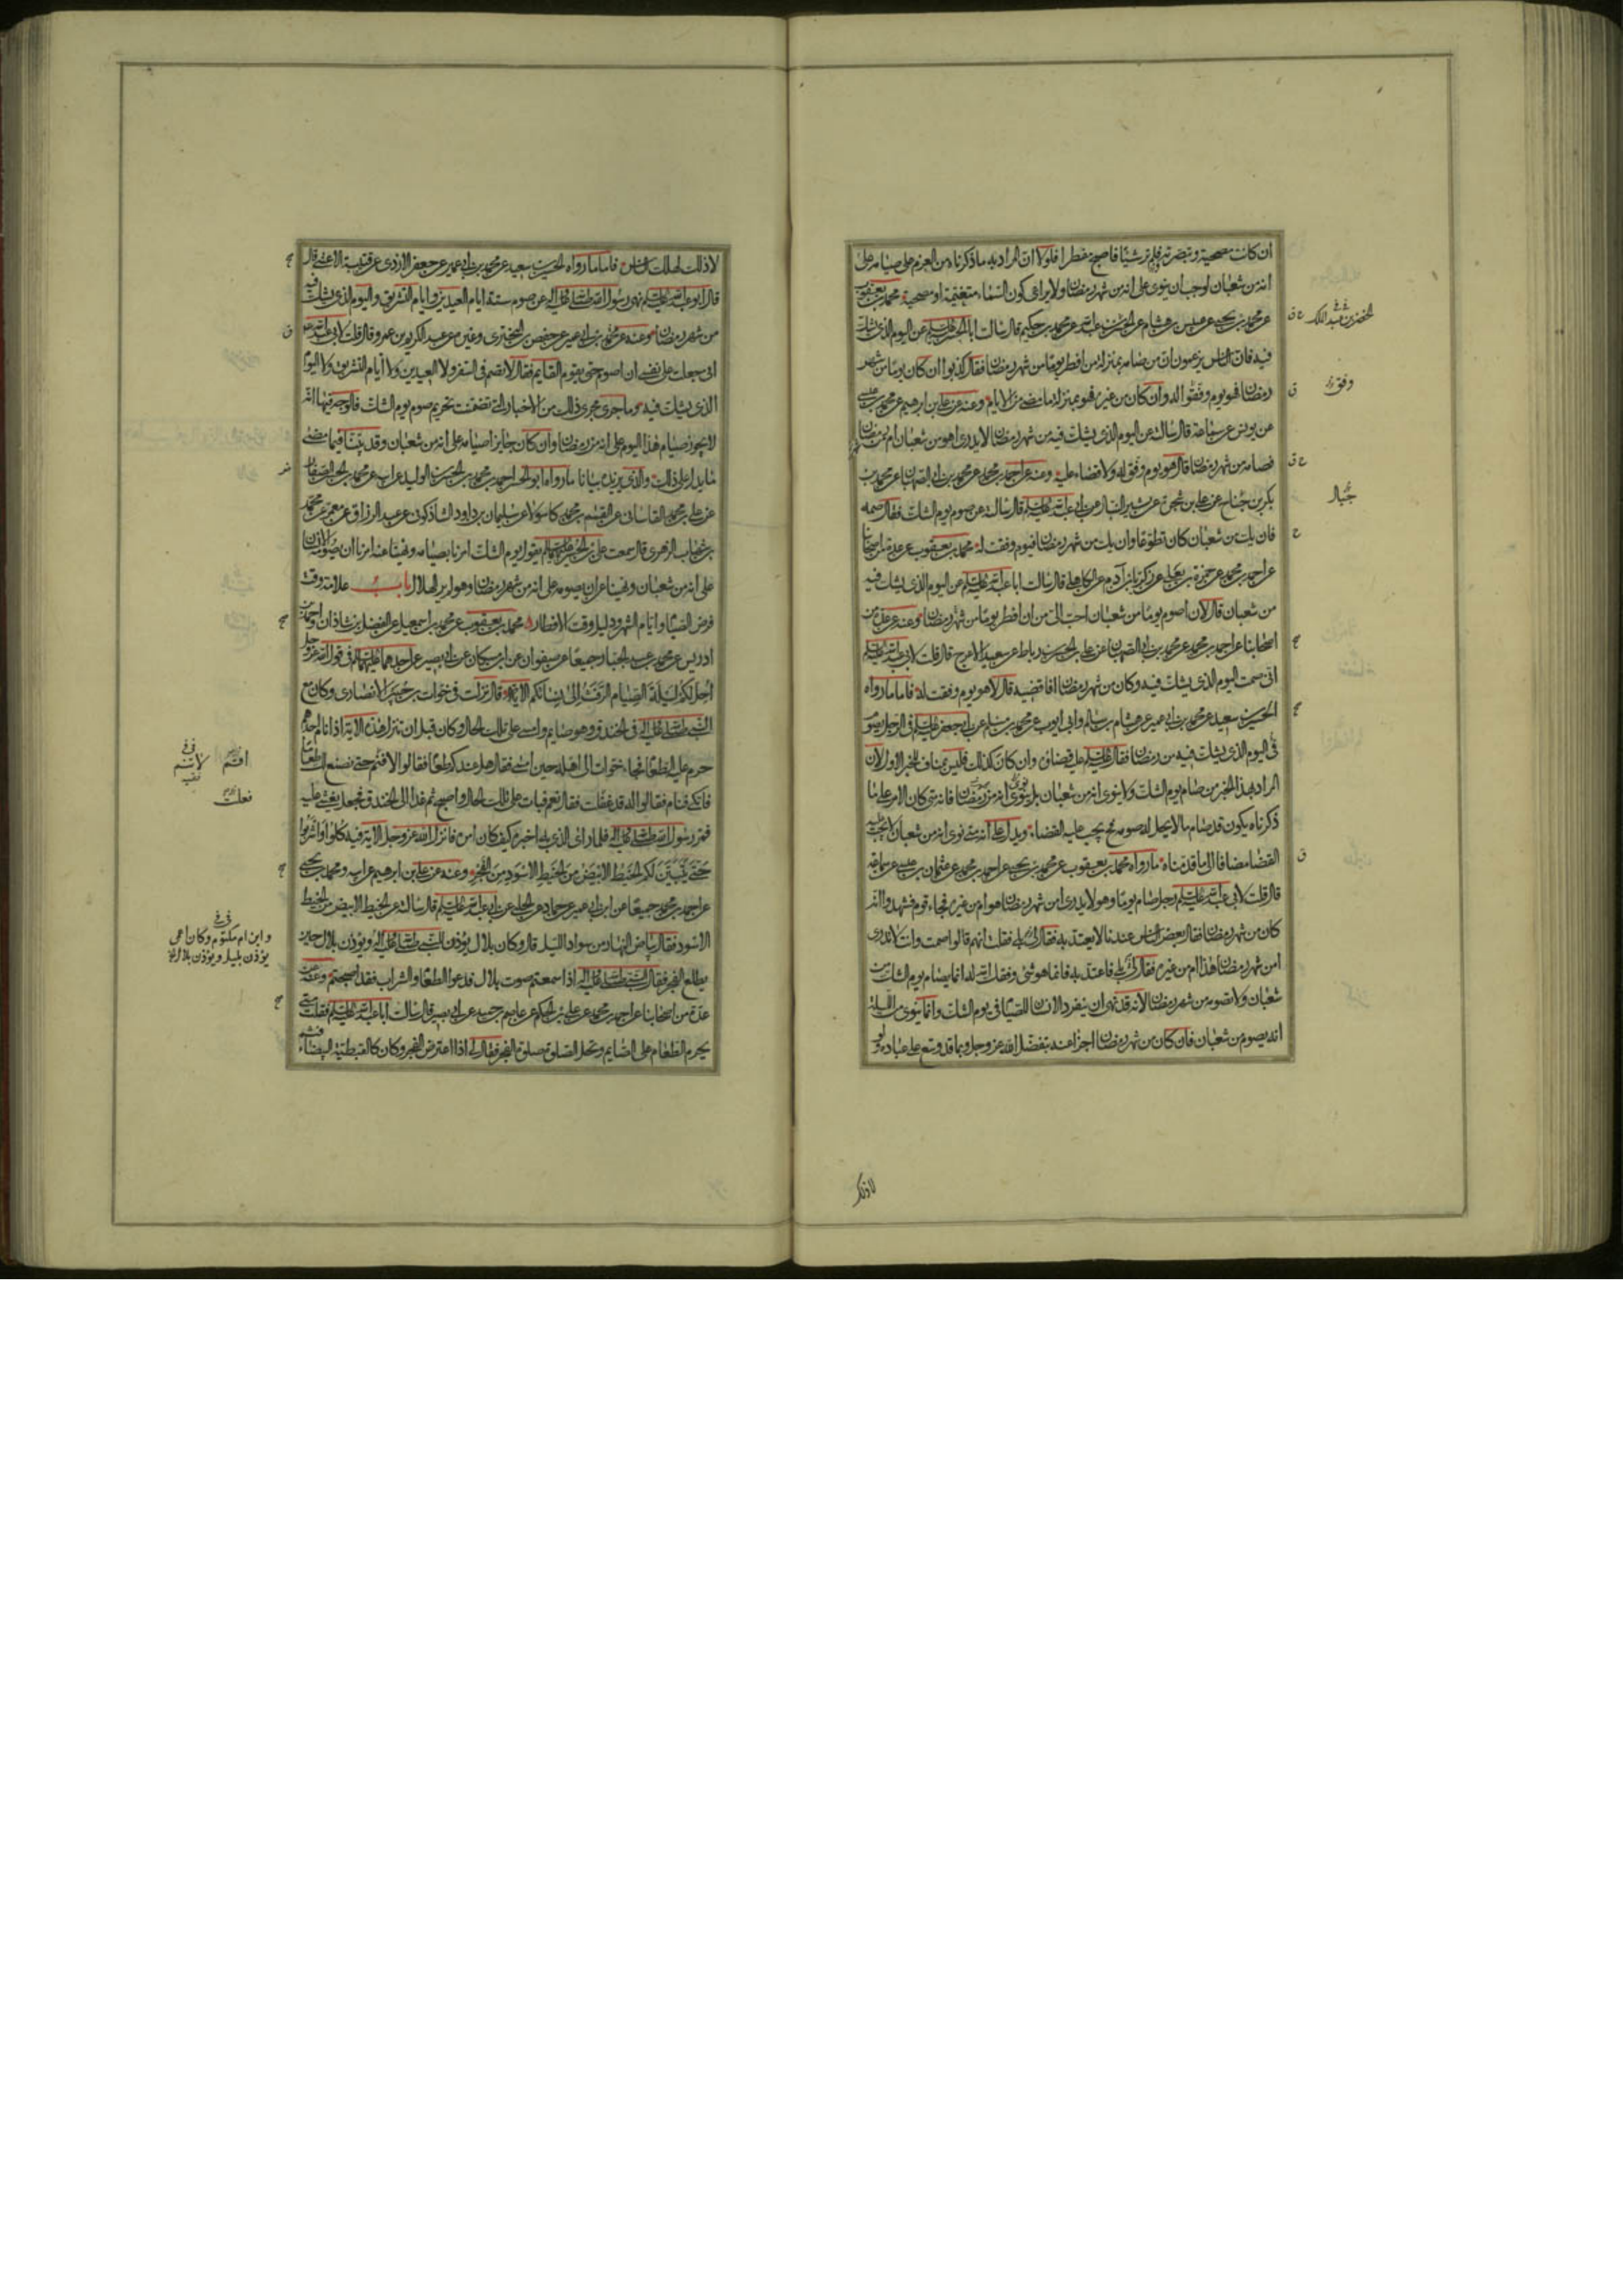 ان كانت مصحية وتبصرته فلم تر شيئا فاصبح مفطرا فلولا ان المراد به ما ذكرناه من العزم على صيامه على
انه من شعبان لوجب ان ينوى على انه من شهر رمضان ولا يراعى كون السماء متغيمة او مصحية محمد بن يعقوب
عن محمد بن يحيى عن هشام عن الخضر بن عبد الملك عن محمد بن حكيم قال سالت ابا الحسن عليه السلم عن اليوم الذى يشك
فيه فان الناس يزعمون ان من صامه بمنزلة من افطر يوما من شهر رمضان فقال كذبوا ان كان يوما من شهر
رمضان فهو يوم وفقوا له وان كان من غيره فهو بمنزلة ما مضى من الايام وعنه عن على بن ابرهيم عن محمد بن عيسى
عن يونس عن سماعة قال سالته عن اليوم الذى يشك فيه من شهر رمضان لا يدرى اهو من شعبان ام من رمضان
فصامه من شهر رمضان قال هو يوم وفق له ولا قضاء عليه وعنه عن احمد بن محمد عن محمد بن ابى الصهبان عن محمد بن
بكر بن جناح عن على بن شجرة عن بشير النبال عن ابى عبد الله عليه السلم قال سالته عن صوم يوم الشك فقال صمه
فان يك من شعبان كان تطوعا وان يك من شهر رمضان فيوم وفقت له محمد بن يعقوب عن عدة من اصحابنا
عن احمد بن محمد عن حمزة بن يعلى عن زكريا بن آدم عن الكاهلى قال سالت ابا عبد الله عليه السلم عن اليوم الذى يشك فيه
من شعبان قال لان اصوم يوما من شعبان احب الى من ان افطر يوما من شهر رمضان وعنه عن عدة من
اصحابنا عن احمد بن محمد عن محمد بن ابى الصهبان عن على بن الحسن بن رباط عن سعيد الاعرج قال قلت لابى عبد الله عليه السلم
انى صمت اليوم الذى يشك فيه وكان من شهر رمضان افاقضيه قال لا هو يوم وفقت له فاما ما رواه
الحسين بن سعيد عن محمد بن ابى عمير عن هشام بن سالم وابى ايوب عن محمد بن مسلم عن ابى جعفر عليه السلم فى الرجل يصوم
فى اليوم الذى يشك فيه من رمضان فقال عليه السلم عليه قضاؤه وان كان كذلك فليس بمناف للخبر الاول لان
المراد بهذا الخبر من صام يوم الشك ولا ينوى انه من شعبان بل ينوى انه من رمضان فانه متى كان الامر على ما
ذكرناه يكون قد صام ما لا يحل له صومه فح يجب عليه القضاء ويدل على انه متى نوى انه من شعبان لا يجب عليه
القضا مضافا الى ما قدمناه ما رواه محمد بن يعقوب عن محمد بن يحيى عن احمد بن محمد عن عثمان بن عيسى عن سماعة
قال قلت لابى عبد الله عليه السلم رجل صام يوما وهو لا يدرى امن شهر رمضان هو ام من غيره فجاء قوم فشهدوا انه
كان من شهر رمضان فقال بعض الناس عندنا لا يعتد به فقال لى بلى فقلت انهم قالوا صمت وانت لا تدرى
امن شهر رمضان هذا ام من غيره فقال لى بلى فاعتد به فانما هو شئ وفقك الله له انما يصام يوم الشك من
شعبان ولا تصومه من شهر رمضان لانه قد نهى ان ينفرد الانسان للصيام فى يوم الشك وانما ينوى من الليلة
انه يصوم من شعبان فان كان من شهر رمضان اجزا عنه بتفضل الله عز وجل وبما قد وسع على عباده ولو
الخضر بن عبد الملك
وفق
جبال
لا ذلك
لا ذلك لهلك الناس فاما ما رواه الحسين بن سعيد عن محمد بن ابى عمير عن جعفر الازدى عن قتيبة الاعشى قال
قال ابو عبد الله عليه السلم نهى رسول الله صلى الله عليه واله عن صوم ستة ايام العيدين وايام التشريق واليوم الذى يشك فيه
من شهر رمضان وعنه عن محمد بن ابى عمير عن حفص بن البخترى وغيره عن عبد الكريم بن عمرو قال قلت لابى عبد الله عليه
انى جعلت على نفسى ان اصوم حتى يقوم القايم فقال لا تصم فى السفر ولا العيدين ولا ايام التشريق ولا اليوم
الذى يشك فيه وما جرى مجرى ذلك من الاخبار التى تضمنت تحريم صوم يوم الشك فالوجه فيها انه
لا يجوز صيام هذا اليوم على انه من رمضان وان كان جايزا صيامه على انه من شعبان وقد بينا فيما مضى
ما يدل على ذلك والذى يزيده بيانا ما رواه ابو الحسن احمد بن محمد بن الحسن بن الوليد عن ابيه عن محمد بن الحسن الصفار
عن على بن محمد القاسانى عن القسم بن محمد كاسولا عن سليمان بن داود الشاذكونى عن عبد الرزاق عن معمر عن محمد
بن شهاب الزهرى قال سمعت على بن الحسين عليهما السلم يقول يوم الشك امرنا بصيامه ونهينا عنه امرنا ان يصومه الانسان
على انه من شعبان ونهينا عن ان يصومه على انه من شهر رمضان وهو لم ير الهلال باب علامة وقت
فرض الصيام وايام الشهر ودليل وقت الافطار محمد بن يعقوب عن محمد بن اسمعيل عن الفضل بن شاذان واحمد بن
ادريس عن محمد بن عبد الجبار جميعا عن صفوان عن ابن مسكان عن ابى بصير عن احدهما عليهما السلم فى قول الله عز وجل
احل لكم ليلة الصيام الرفث الى نسائكم الاية قال نزلت فى خوات بن جبير الانصارى وكان مع
النبى صلى الله عليه واله فى الخندق وهو صايم وامسى على تلك الحال وكان قبل ان تنزل هذه الاية اذا نام احدهم
حرم عليه الطعام فجاء خوات الى اهله حين امسى فقال هل عندكم طعام فقالوا لا تنم حتى نصنع لك طعاما
فاتكى فنام فقالوا له قد غفلت فقال نعم فبات على تلك الحال واصبح ثم غدا الى الخندق فجعل يغشى عليه
فمر رسول الله صلى الله عليه واله فلما رأى الذى به اخبره كيف كان امره فانزل الله عز وجل الاية فيه كلوا واشربوا
حتى يتبين لكم الخيط الابيض من الخيط الاسود من الفجر وعنه عن على بن ابرهيم عن ابيه ومحمد بن يحيى
عن احمد بن محمد جميعا عن ابن ابى عمير عن حماد عن الحلبى عن ابى عبد الله عليه السلم قال سالته عن الخيط الابيض من الخيط
الاسود فقال بياض النهار من سواد الليل قال وكان بلال يؤذن للنبى صلى الله عليه واله ويؤذن بلال حين
يطلع الفجر فقال النبى صلى الله عليه واله اذا سمعتم صوت بلال فدعوا الطعام والشراب فقد اصبحتم وعنه عن
عدة من اصحابنا عن احمد بن محمد عن على بن الحكم عن عاصم بن حميد عن ابى بصير قال سالت ابا عبد الله عليه السلم فقلت متى
يحرم الطعام على الصايم وتحل الصلوة صلوة الفجر فقال لى اذا اعترض الفجر وكان كالقبطية البيضاء فثم
اقم لا تنم
فعلت
وابن ام مكتوم وكان اعمى
يؤذن بليل ويؤذن بلال